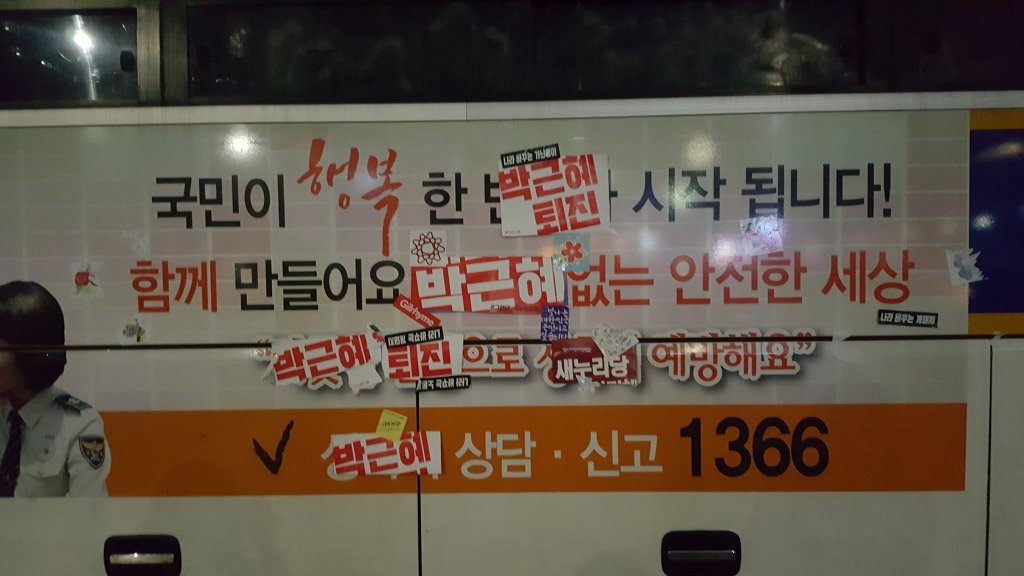 나라 바꾸는 가난뱅이
국민이 행복 한 박근혜 퇴진 시작 됩니다!
함께 만들어요 박근혜 없는 안전한 세상
Girhyme
나라 바꾸는
박근혜 퇴진 으로 새누리당 예방해요”
박근혜 상담·신고 1366